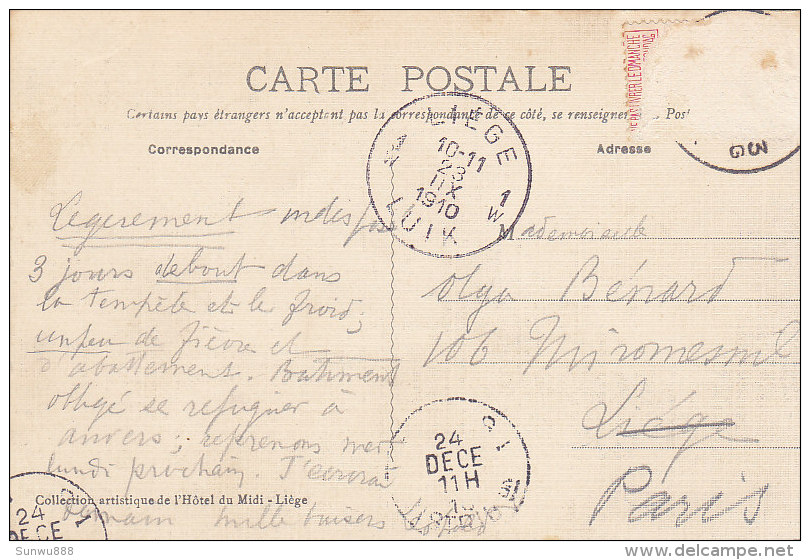 NE PAS LIVRER LE DIMANCHE
CARTE POSTALE
Certains pays étrangers n'acceptent pas la correspondance de ce côté, se renseigner Pos
Correspondance
Adresse
LIÈGE
10-11
23
XII
1910
1 W
LUIK
Légèrement indisposé
3 jours debout dans
la tempête et le froid,
un peu de fièvre et
d'abattement. Batiment
obligé se refugier à
anvers; reprenons mer
lundi prochain. J'écrirai
demain mille baisers
Mademoiselle
olga Bénard
106 Miromesnil
Liége
Paris
24
DECE
11H
Collection artistique de l'Hôtel du Midi - Liège
24
DECE
Sunwu888
delcampe.net